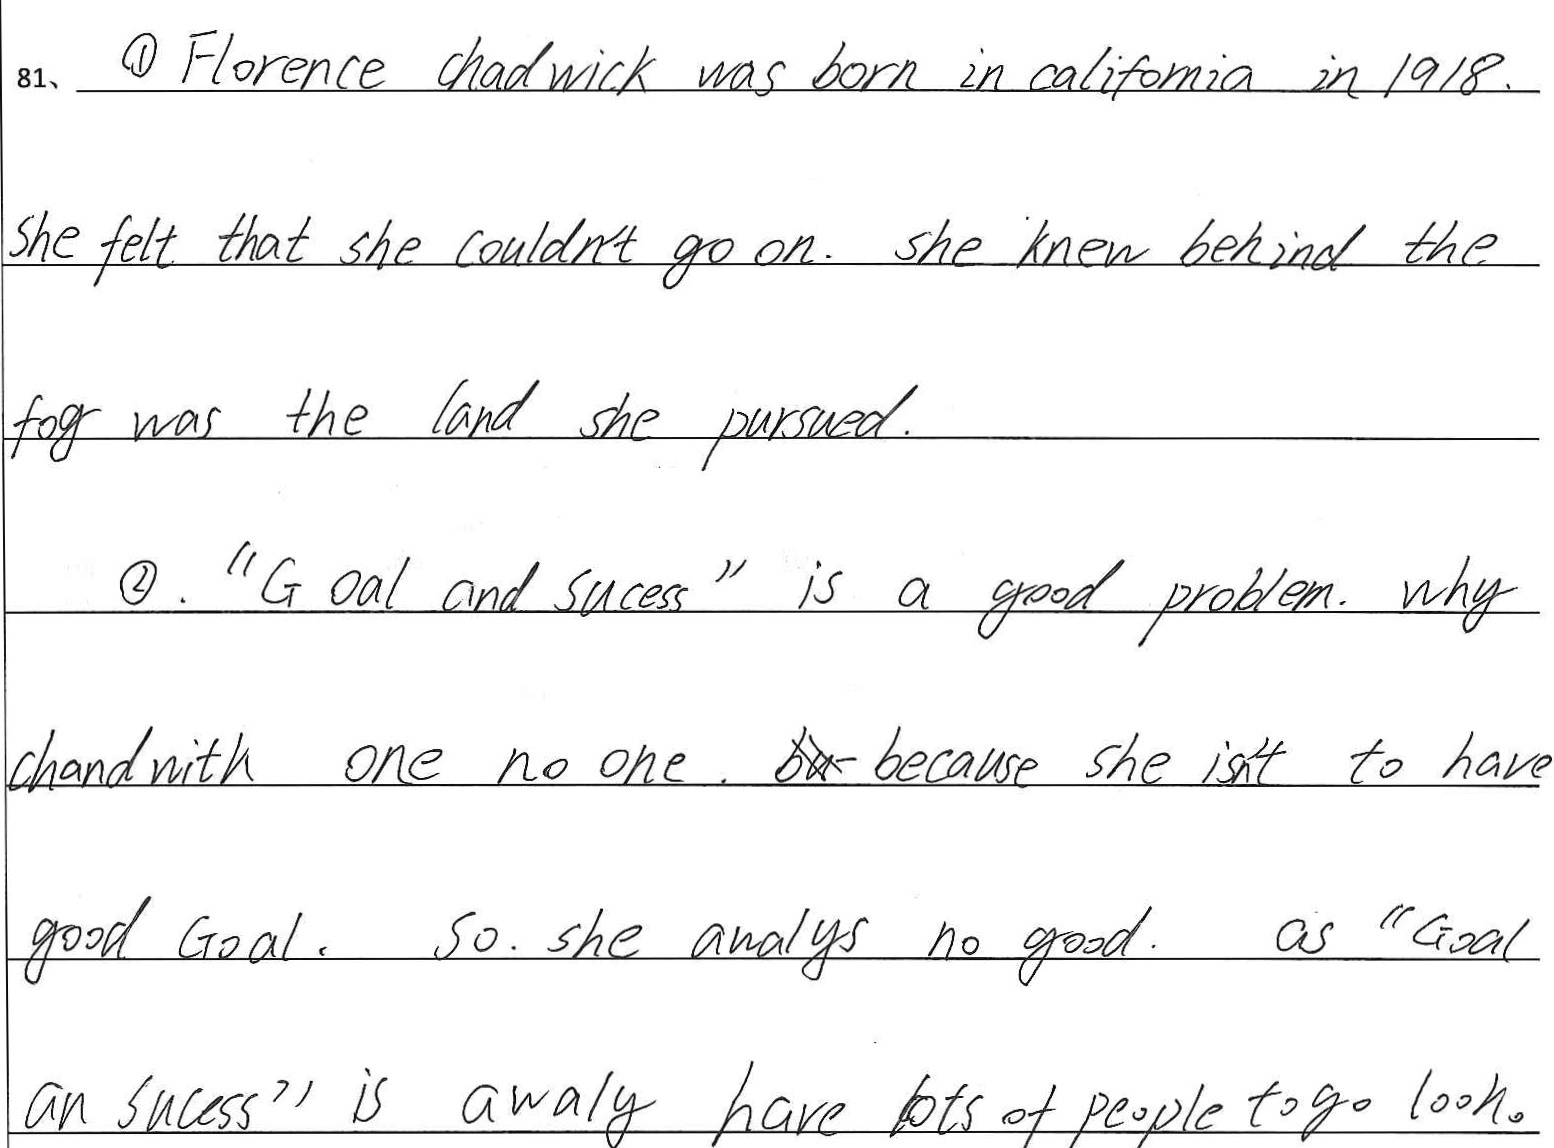 81、 ① Florence chadwick was born in california in 1918.
She felt that she couldn't go on. she knew behind the
fog was the land she pursued.
②. "Goal and sucess" is a good problem. why
chandnith one no one. because she isn't to have
good Goal. so. she analys no good. as "Goal
an sucess" is awaly have lots of people to go look。